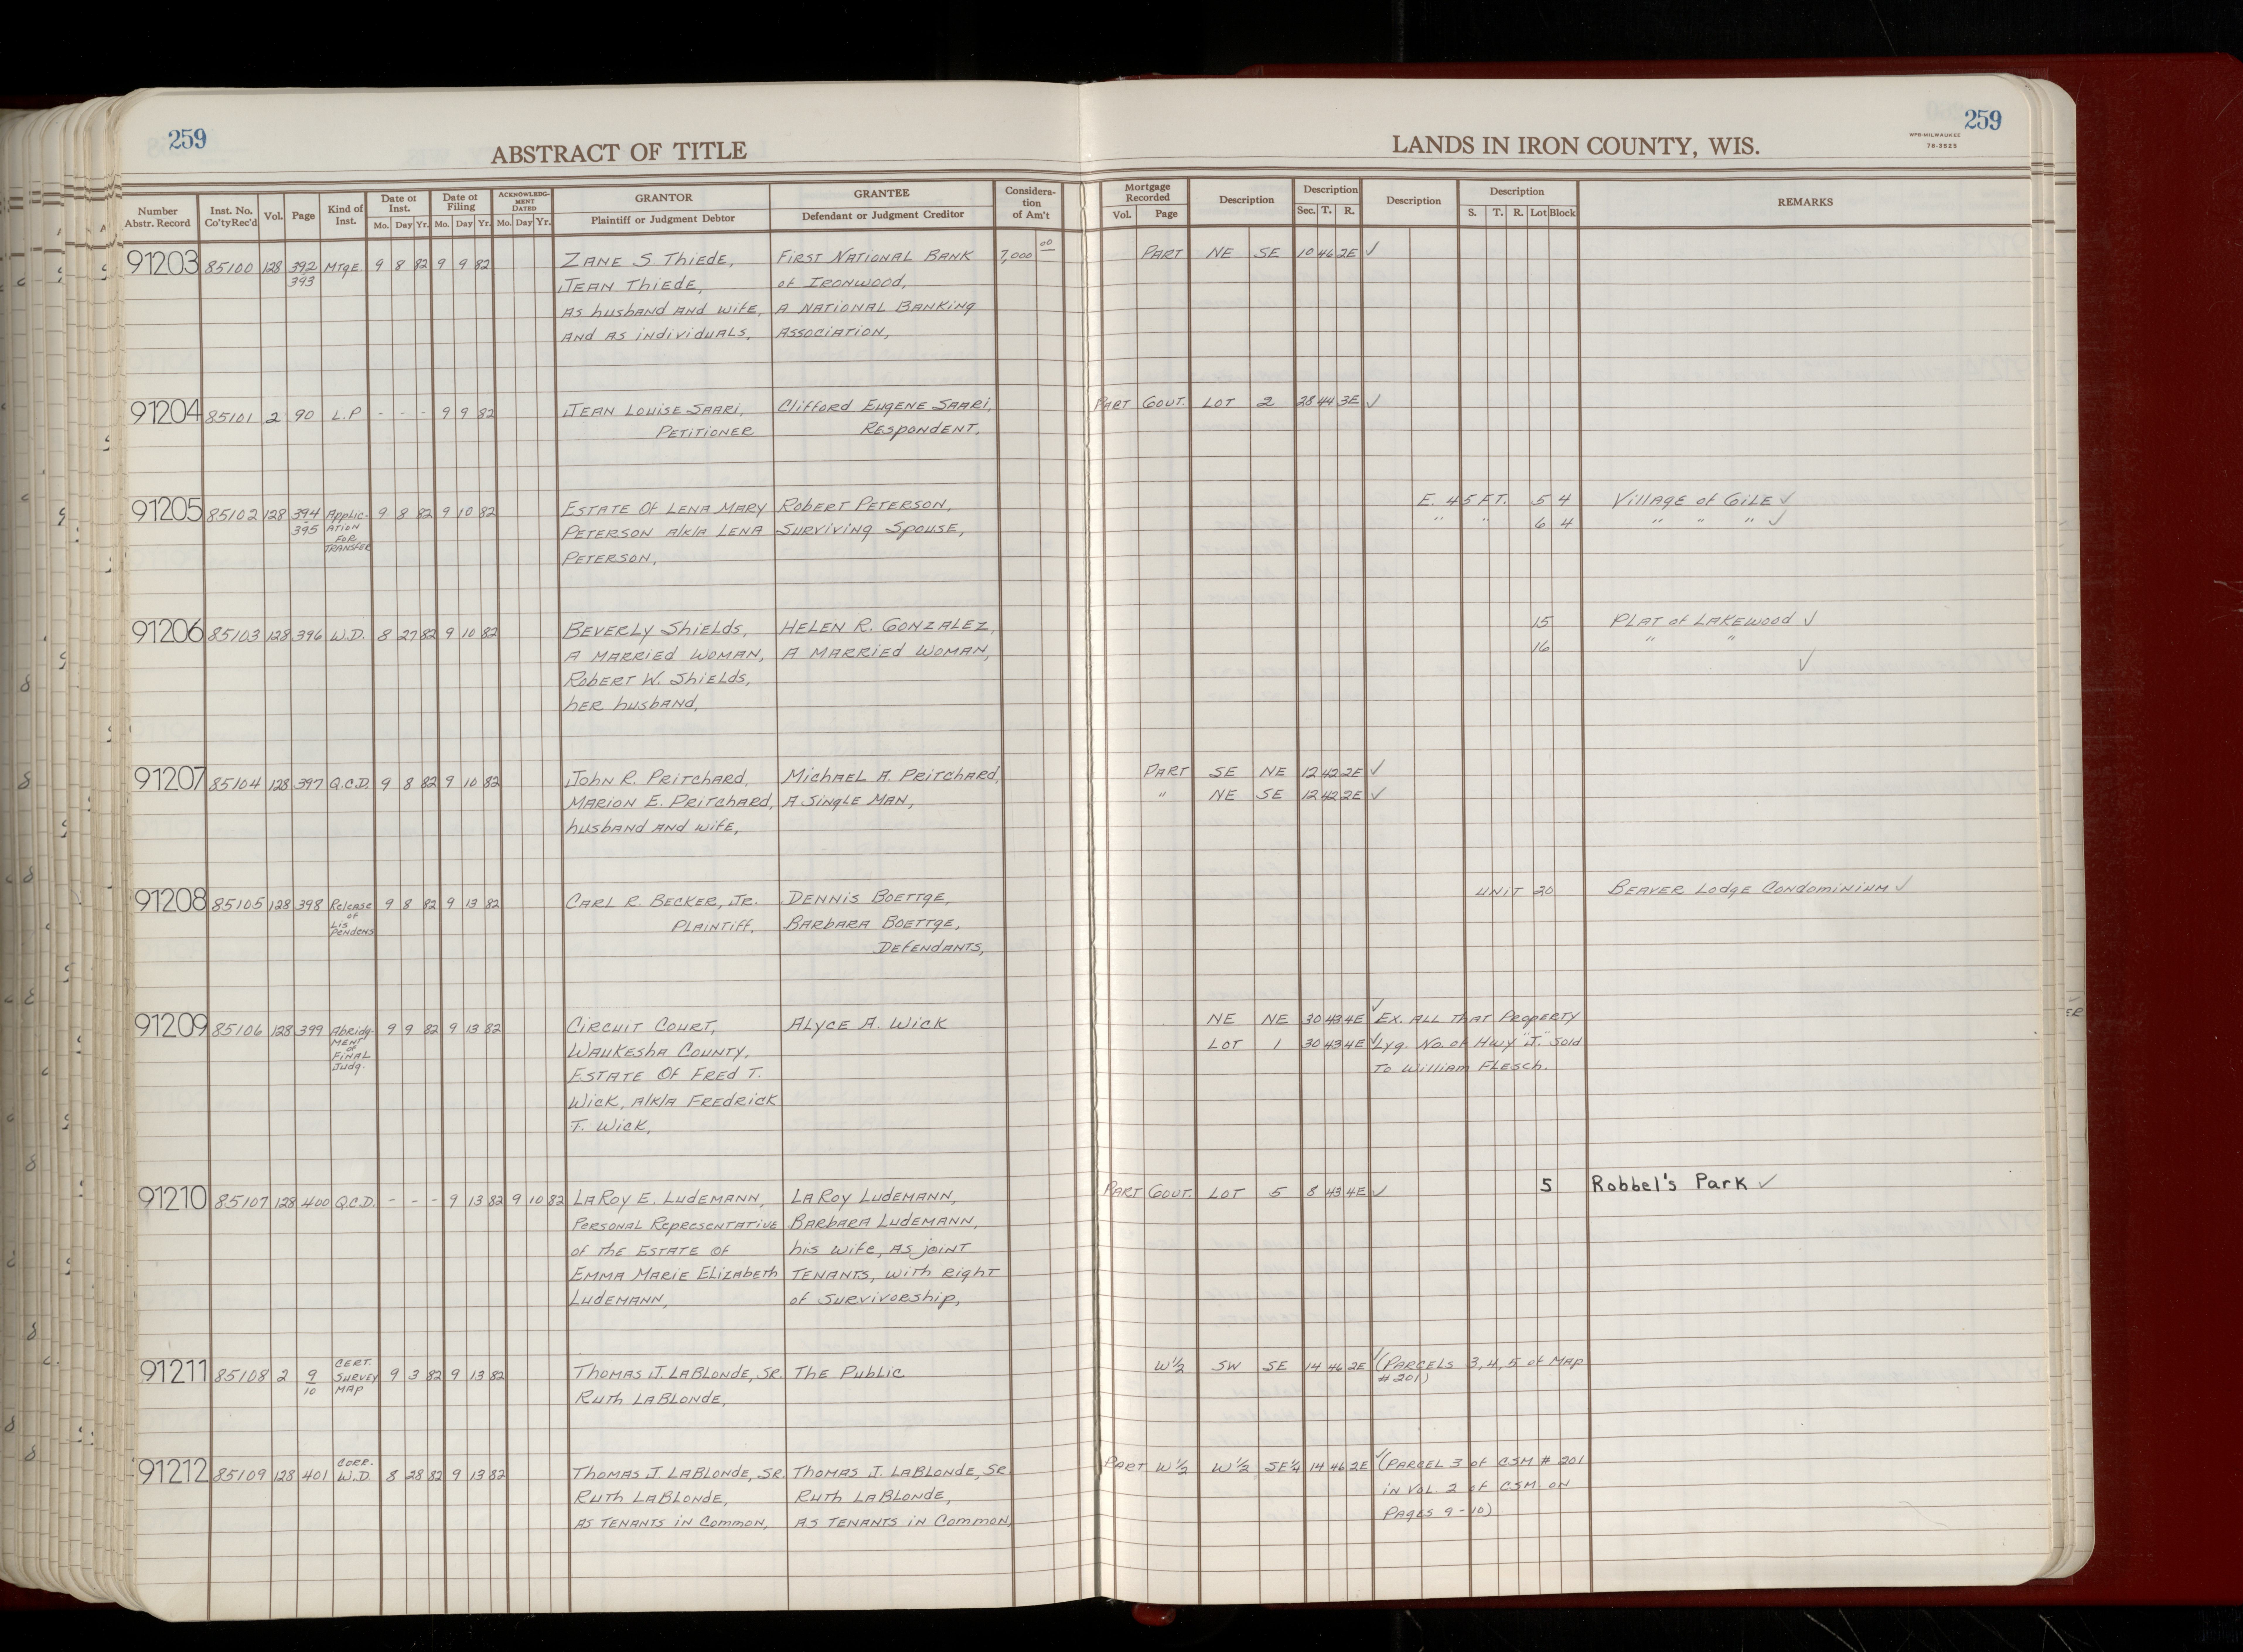 259
ABSTRACT OF TITLE
LANDS IN IRON COUNTY, WIS.
WPB-MILWAUKEE
78-3525
259
Number Abstr. Record | Inst. No. Co'ty Rec'd | Vol. | Page | Kind of Inst. | Date of Inst. Mo. Day Yr. | Date of Filing Mo. Day Yr. | ACKNOWLEDGMENT DATED Mo. Day Yr. | GRANTOR Plaintiff or Judgment Debtor | GRANTEE Defendant or Judgment Creditor | Consideration of Am't | Mortgage Recorded Vol. Page | Description | Description Sec. T. R. | Description | Description S. T. R. Lot Block | REMARKS
91203 85100 128 392 MTGE 9 8 82 9 9 82 ZANE S THIEDE, FIRST NATIONAL BANK 7,000 00 PART NE SE 10 46 2E ✓
393 JEAN THIEDE, of IRONWOOD,
AS husband AND wife, A NATIONAL BANKING
AND AS individuals, ASSOCIATION,
91204 85101 2 90 L.P - - - 9 9 82 JEAN LOUISE SAARI, Clifford EUGENE SAARI, PART GOUT. LOT 2 28 44 3E ✓
PETITIONER RESPONDENT,
91205 85102 128 394 Applic- 9 8 82 9 10 82 ESTATE OF LENA MARY ROBERT PETERSON, E. 45 FT. 5 4 Village of GILE ✓
395 ATION PETERSON A/K/A LENA SURVIVING SPOUSE, " " 6 4 " " " ✓
FOR TRANSFER PETERSON,
91206 85103 128 396 W.D. 8 27 82 9 10 82 BEVERLY SHIELDS, HELEN R. GONZALEZ, 15 PLAT of LAKEWOOD ✓
A MARRIED WOMAN, A MARRIED WOMAN, 16 " " ✓
ROBERT W. SHIELDS,
hER husband,
91207 85104 128 397 Q.C.D. 9 8 82 9 10 82 JOHN R. PRITCHARD, MICHAEL A. PRITCHARD, PART SE NE 12 42 2E ✓
MARION E. PRITCHARD, A SINGLE MAN, " NE SE 12 42 2E ✓
husband AND wife,
91208 85105 128 398 Release 9 8 82 9 13 82 CARL R. BECKER, JR. DENNIS BOETTGE, UNIT 20 BEAVER Lodge CONDOMINIUM ✓
of Lis Pendens PLAINTIFF, BARBARA BOETTGE,
DEFENDANTS,
91209 85106 128 399 Abridg- 9 9 82 9 13 82 CIRCUIT COURT, ALYCE A. WICK NE NE 30 43 4E ✓ EX. ALL THAT PROPERTY
MENT of WAUKESHA COUNTY, LOT 1 30 43 4E ✓ Lyg. No. of Hwy "J." Sold
FINAL Judg. ESTATE OF FRED T. To WILLIAM FLESCH.
WICK, A/K/A FREDRICK
T. WICK,
91210 85107 128 400 Q.C.D. - - - 9 13 82 9 10 82 LAROY E. LUDEMANN, LAROY LUDEMANN, PART GOUT. LOT 5 8 43 4E ✓ 5 Robbel's Park ✓
PERSONAL REPRESENTATIVE BARBARA LUDEMANN,
of the ESTATE OF his wife, AS joint
EMMA MARIE ELIZABETH TENANTS, with right
LUDEMANN, of SURVIVORSHIP,
91211 85108 2 9 CERT. SURVEY MAP 9 3 82 9 13 82 THOMAS J. LABLONDE, SR. The Public W½ SW SE 14 46 2E ✓ (PARCELS 3, 4, 5 of MAP
10 RUTH LABLONDE, # 201)
91212 85109 128 401 CORR. W.D. 8 28 82 9 13 82 THOMAS J. LABLONDE, SR. THOMAS J. LABLONDE, SR. PART W½ W½ SE¼ 14 46 2E ✓ (PARCEL 3 of CSM # 201
RUTH LABLONDE, RUTH LABLONDE, in VOL. 2 of CSM ON
AS TENANTS in COMMON, AS TENANTS in COMMON, PAGES 9-10)